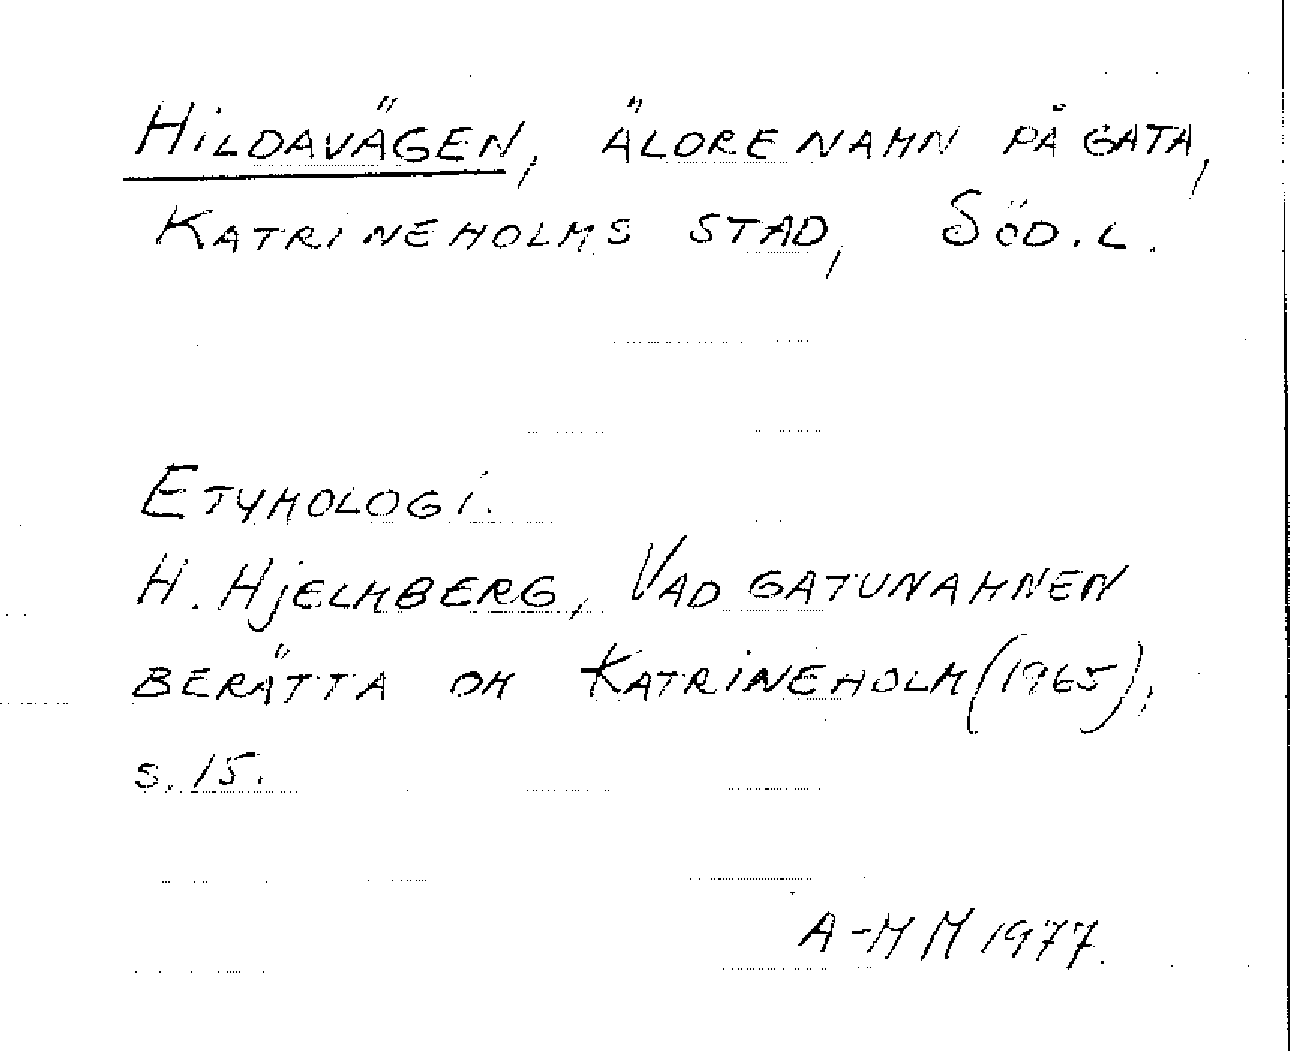 HILDAVÄGEN, ÄLDRE NAMN PÅ GATA,
KATRINEHOLMS STAD, SÖD.L.
ETYMOLOGI.
H. HJELMBERG, VAD GATUNAMNEN
BERÄTTA OM KATRINEHOLM (1965),
S. 15.
A-M M 1977.